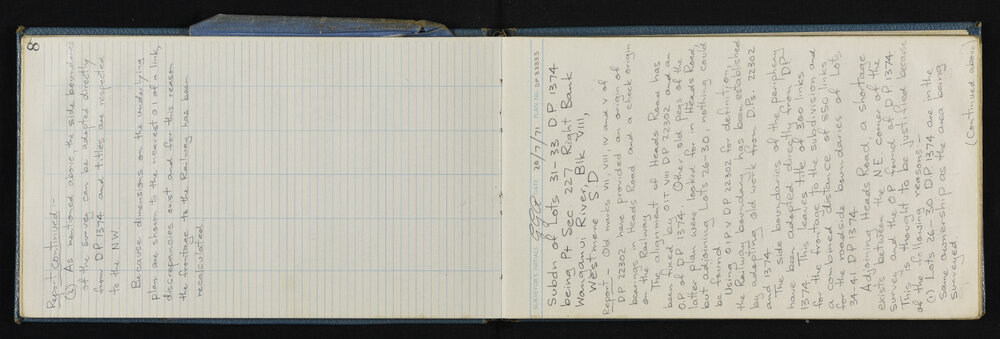 8
Report Continued :-
(2) As mentioned above the side boundaries
of the survey can be adopted directly
from DP 1374 and titles are respected
to the NW
Because dimensions on the underlying
plan are shown to the nearest 0.1 of a link,
discrepancies exist and for this reason
the frontage to the Railway has been
recalculated
SURVEYOR'S INITIALS DATE 20/7/71 PLAN NO. DP 33333
Subdn of Lots 31-33 DP 1374
being Pt Sec 227 Right Bank
Wanganui River, Blk VIII,
Westmere S.D
Report - Old marks VII, VIII, IV and V of
DP 22302 have provided an origin of
bearings in Heads Road and a check origin
on the Railway
The alignment of Heads Road has
been fixed by OIT VIII DP 22302 and an
O.P of DP 1374. Other old pegs of the
latter plan were looked for in Heads Road,
but adjoining Lots 26-30, nothing could
be found
Using O.I.P V DP 22302 for definition,
the Railway boundary has been established
by adopting old work from D.Ps. 22302
and 1374
The side boundaries of the periphery
have been adopted directly from DP
1374. This leaves title of 300 links
for the frontage to the subdivision and
a combined distance of 550 links
for the roadside boundaries of Lots
34-41 DP 1374
Adjoining Heads Road, a shortage
exists between the NE corner of the
survey and the OP found of DP 1374
This is thought to be justified because
of the following reasons:-
(1) Lots 26-30 DP 1374 are in the
same ownership as the area being
surveyed
(Continued above)